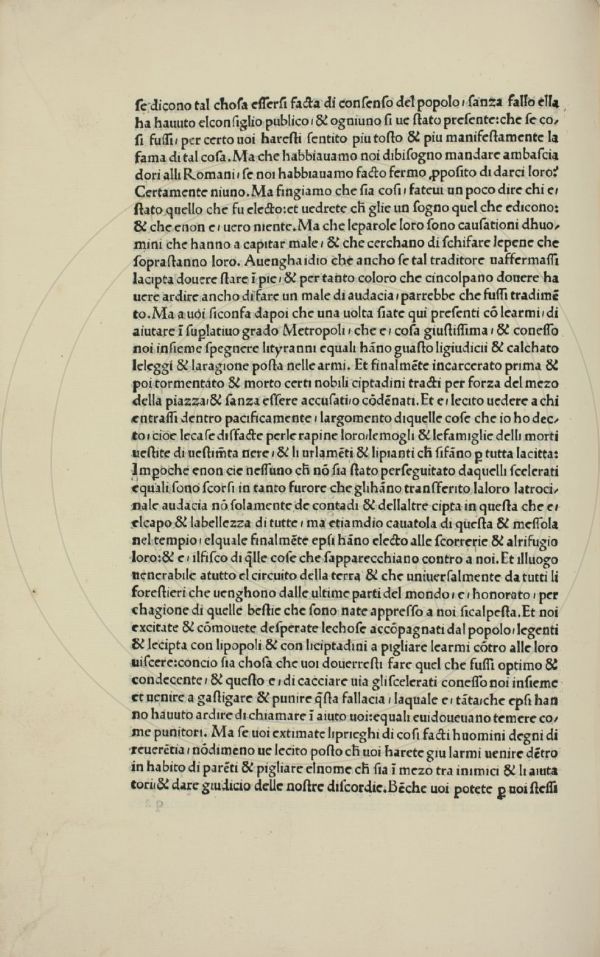 se dicono tal chosa essersi facta di consenso del popolo, sanza fallo ella
ha hauuto elconsiglio publico, & ogniuno si ue stato presente: che se co,
si fussi, per certo uoi haresti sentito piu tosto & piu manifestamente la
fama di tal cosa. Ma che habbiauamo noi dibisogno mandare ambascia
dori alli Romani, se noi habbiauamo facto fermo ꝓposito di darci loro?
Certamente niuno. Ma fingiamo che sia cosi, fateui un poco dire chi e,
stato quello che fu electo: et uedrete ch̄ glie un sogno quel che edicono:
& che enon e, uero niente. Ma che leparole loro sono causationi dhuo,
mini che hanno a capitar male, & che cerchano di schifare lepene che
soprastanno loro. Auenghaidio che ancho se tal traditore uaffermassi
lacipta douere stare ī pie, & per tanto coloro che cincolpano douere ha
uere ardire ancho di fare un male di audacia, parrebbe che fussi tradimē
to. Ma a uoi siconfa dapoi che una uolta siate qui presenti cō learmi, di
aiutare ī suplatiuo grado Metropoli, che e, cosa giustissima, & conesso
noi insieme spegnere lityranni equali hāno guasto ligiudicii & calchato
leleggi & laragione posta nelle armi. Et finalmēte incarcerato prima &
poi tormentato & morto certi nobili ciptadini tracti per forza del mezo
della piazza, & sanza essere accusati, o cōdēnati. Et e, lecito uedere a chi
entrassi dentro pacificamente, largomento diquelle cose che io ho dec,
to, cioe lecase disfacte perle rapine loro, lemogli & lefamiglie delli morti
uestite di uestimēta nere, & li urlamēti & lipianti ch̄ sifāno ꝑ tutta lacitta:
Impoche enon cie nessuno ch̄ nō sia stato perseguitato daquelli scelerati
equali sono scorsi in tanto furore che glihāno transferito laloro latroci,
nale audacia nō solamente de contadi & dellaltre cipta in questa che e,
elcapo & labellezza di tutte, ma etiamdio cauatola di questa & messola
nel tempio, elquale finalmēte epsi hāno electo alle scorrerie & alrifugio
loro: & e, ilfisco di q̄lle cose che sapparecchiano contro a noi. Et illuogo
uenerabile atutto el circuito della terra & che uniuersalmente da tutti li
forestieri che uenghono dalle ultime parti del mondo, e, honorato, per
chagione di quelle bestie che sono nate appresso a noi sicalpesta. Et noi
excitate & cōmouete desperate lechose accōpagnati dal popolo, legenti
& lecipta con lipopoli & con liciptadini a pigliare learmi cōtro alle loro
uiscere: concio sia chosa che uoi douerresti fare quel che fussi optimo &
condecente, & questo e, di cacciare uia gliscelerati conesso noi insieme
et uenire a gastigare & punire q̄sta fallacia, laquale e, tāta, che epsi han
no hauuto ardire di chiamare ī aiuto uoi: equali euidoueuano temere co,
me punitori. Ma se uoi extimate liprieghi di cosi facti huomini degni di
reuerētia, nōdimeno ue lecito posto ch̄ uoi harete giu larmi uenire dētro
in habito di parēti & pigliare elnome ch̄ sia ī mezo tra inimici & li aiuta
tori, & dare giudicio delle nostre discordie. Bēche uoi potete ꝑ uoi stessi